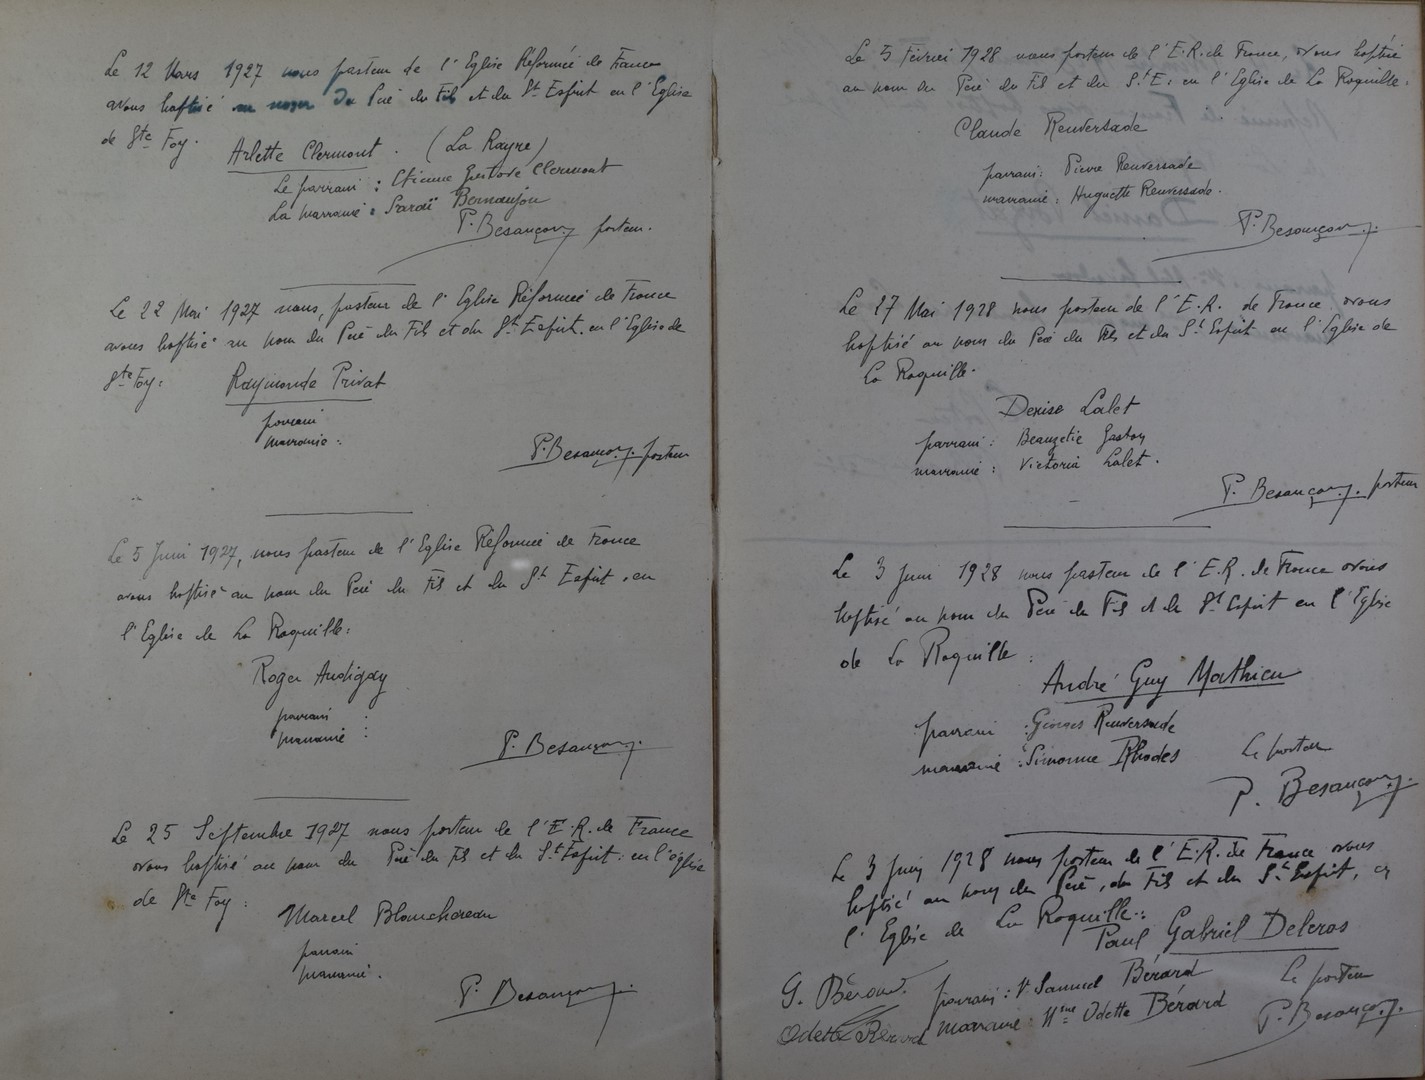 Le 12 Mars 1927 nous pasteur de l'Eglise Réformée de France
avons baptisé au nom du Père du Fils et du St Esprit en l'Eglise
de Ste Foy.
Arlette Clermont . (La Rayre)
Le parrain : Etienne Gustave Clermont
La marraine : Saraï Bernaujou
P. Besançon, pasteur.
Le 22 Mai 1927 nous, pasteur de l'Eglise Réformée de France
avons baptisé au nom du Père du Fils et du St Esprit en l'Eglise de
Ste Foy :
Raymonde Privat
parrain
marraine :
P. Besançon, pasteur
Le 5 Juin 1927, nous pasteur de l'Eglise Réformée de France
avons baptisé au nom du Père du Fils et du St Esprit, en
l'Eglise de La Roquille :
Roger Audigay
parrain :
marraine :
P. Besançon.
Le 25 Septembre 1927 nous pasteur de l'E.R. de France
avons baptisé au nom du Père du Fils et du St Esprit : en l'église
de Ste Foy :
Marcel Blanchereau
parrain
marraine .
P. Besançon.
Le 5 Février 1928 nous pasteur de l'E.R. de France, avons baptisé
au nom du Père du Fils et du St. E. en l'Eglise de La Roquille :
Claude Renversade
parrain : Pierre Renversade
marraine : Huguette Renversade.
P. Besançon.
Le 27 Mai 1928 nous pasteur de l'E.R. de France avons
baptisé au nom du Père du Fils et du St Esprit en l'Eglise de
La Roquille.
Denise Lalet
parrain : Beauzetie Gaston
marraine : Victoria Lalet.
P. Besançon, pasteur
Le 3 Juin 1928 nous pasteur de l'E.R. de France avons
baptisé au nom du Père du Fils et du St Esprit en l'Eglise
de La Roquille :
André Guy Mathieu
parrain : Georges Renversade
marraine : Simonne Rhodes
Le pasteur
P. Besançon.
Le 3 Juin 1928 nous pasteur de l'E.R. de France avons
baptisé au nom du Père, du Fils et du St Esprit, en
l'Eglise de La Roquille :
Paul Gabriel Deleros
parrain : Mr Samuel Bérard
marraine : Mme Odette Bérard
G. Bérard.
Odette Bérard
Le pasteur
P. Besançon.